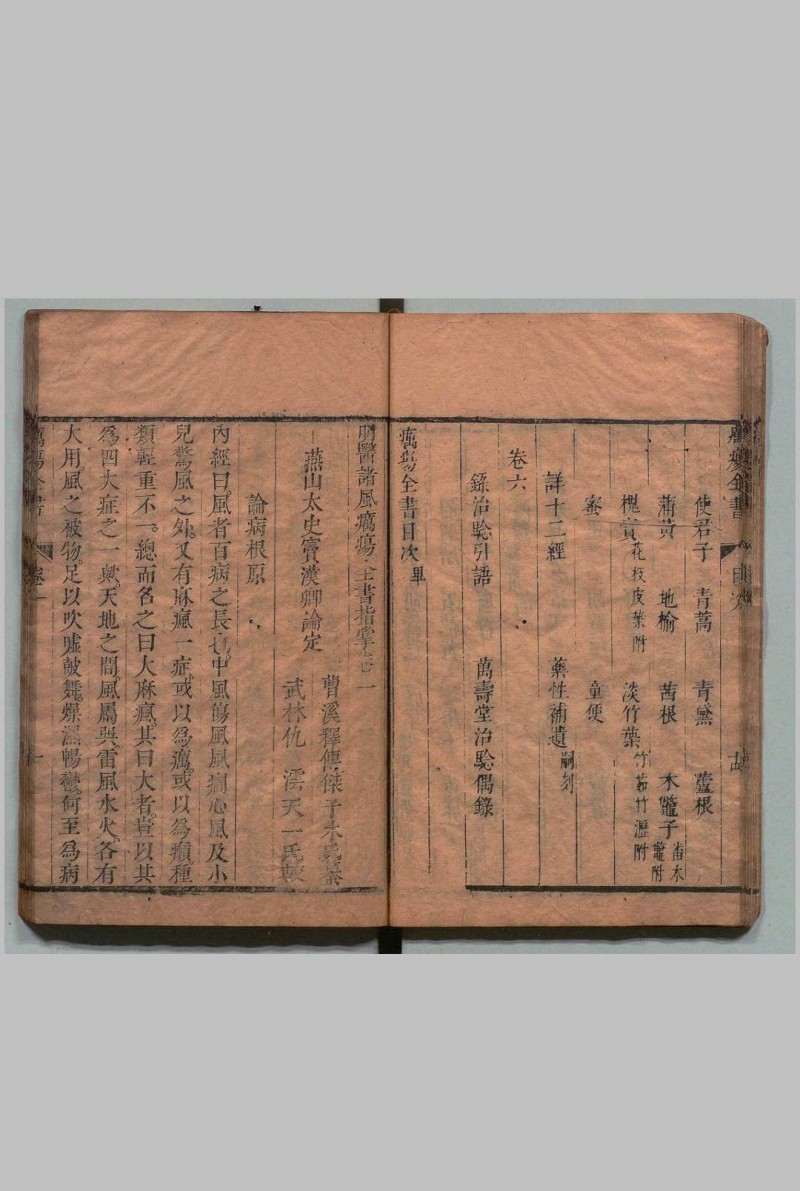 使君子 青蒿 青黛 蘆根
蒲黃 地榆 茜根 木鼈子 番木鼈附
槐實 花枝皮葉附 淡竹葉 竹茹竹瀝附
蜜 童便
詳十二經 藥性補遺 嗣刻
卷六
錄治騐引語 萬壽堂治騐偶錄
癘瘍全書目次 畢
明醫諸風癘瘍全書指掌卷一
燕山太史竇漢卿論定
曹溪釋傳傑子木氏
武林仇 澐天一氏
論病根原
內經曰風者百病之長也中風傷風風癎心風及小
兒驚風之外又有麻瘋一症或以爲癘或以爲癩種
類輕重不一總而名之曰大麻瘋其曰大者豈以其
爲四大症之一歟天地之間風屬巽雷風水火各有
大用風之被物足以吹噓鼓舞燥濕暢鬱何至爲病
癘瘍全書 卷一 一